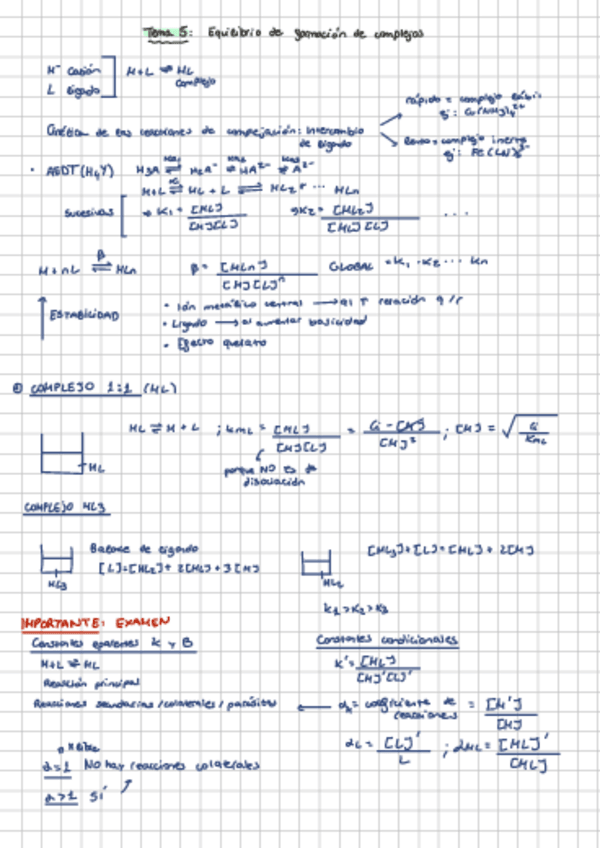 Tema 5: Equilibrio de formación de complejos
M⁻ Catión
L ligado
M+L ⇌ ML
Complejo
Cinética de las reacciones de complejación: Intercambio de ligado
rápido = complejo lábil
ej: Cu(NH3)4²⁺
lento = complejo inerte
ej: Fe(CN)6³⁻
• AEDT (H4Y)
M+L ⇌ ML + L ⇌ ML2 + ... MLn
Sucesivas
K1 = [ML] / [M][L]
K2 = [ML2] / [ML][L] ...
M+nL ⇌ MLn
β
β = [MLn] / [M][L]ⁿ GLOBAL = K1 · K2 ... Kn
↑ ESTABILIDAD
• Ion metálico central → al ↑ relación q/r
• Ligado → al aumentar basicidad
• Efecto quelato
COMPLEJO 1:1 (ML)
ML ⇌ M+L ; KML = [ML] / [M][L] = Ci - [M] / [M]² ; [M] = √(Ci / KML)
ML
porque NO es de disociación
COMPLEJO ML3
Balance de ligado
[L]=[ML2]+ 2[ML]+3[M]
ML3
[ML3]+[L]=[ML]+ 2[M]
ML2
K1>K2>K3
IMPORTANTE: EXAMEN
Constantes aparentes K y B
M+L ⇌ ML
Reacción principal
Reacciones secundarias/colaterales/parásitas
Constantes condicionales
K' = [ML] / [M]'[L]'
← αM = coeficiente de reacciones = [M'] / [M]
αL = [L]' / L ; αML = [ML]' / [ML]
α=1 No hay reacciones colaterales
α>1 Sí